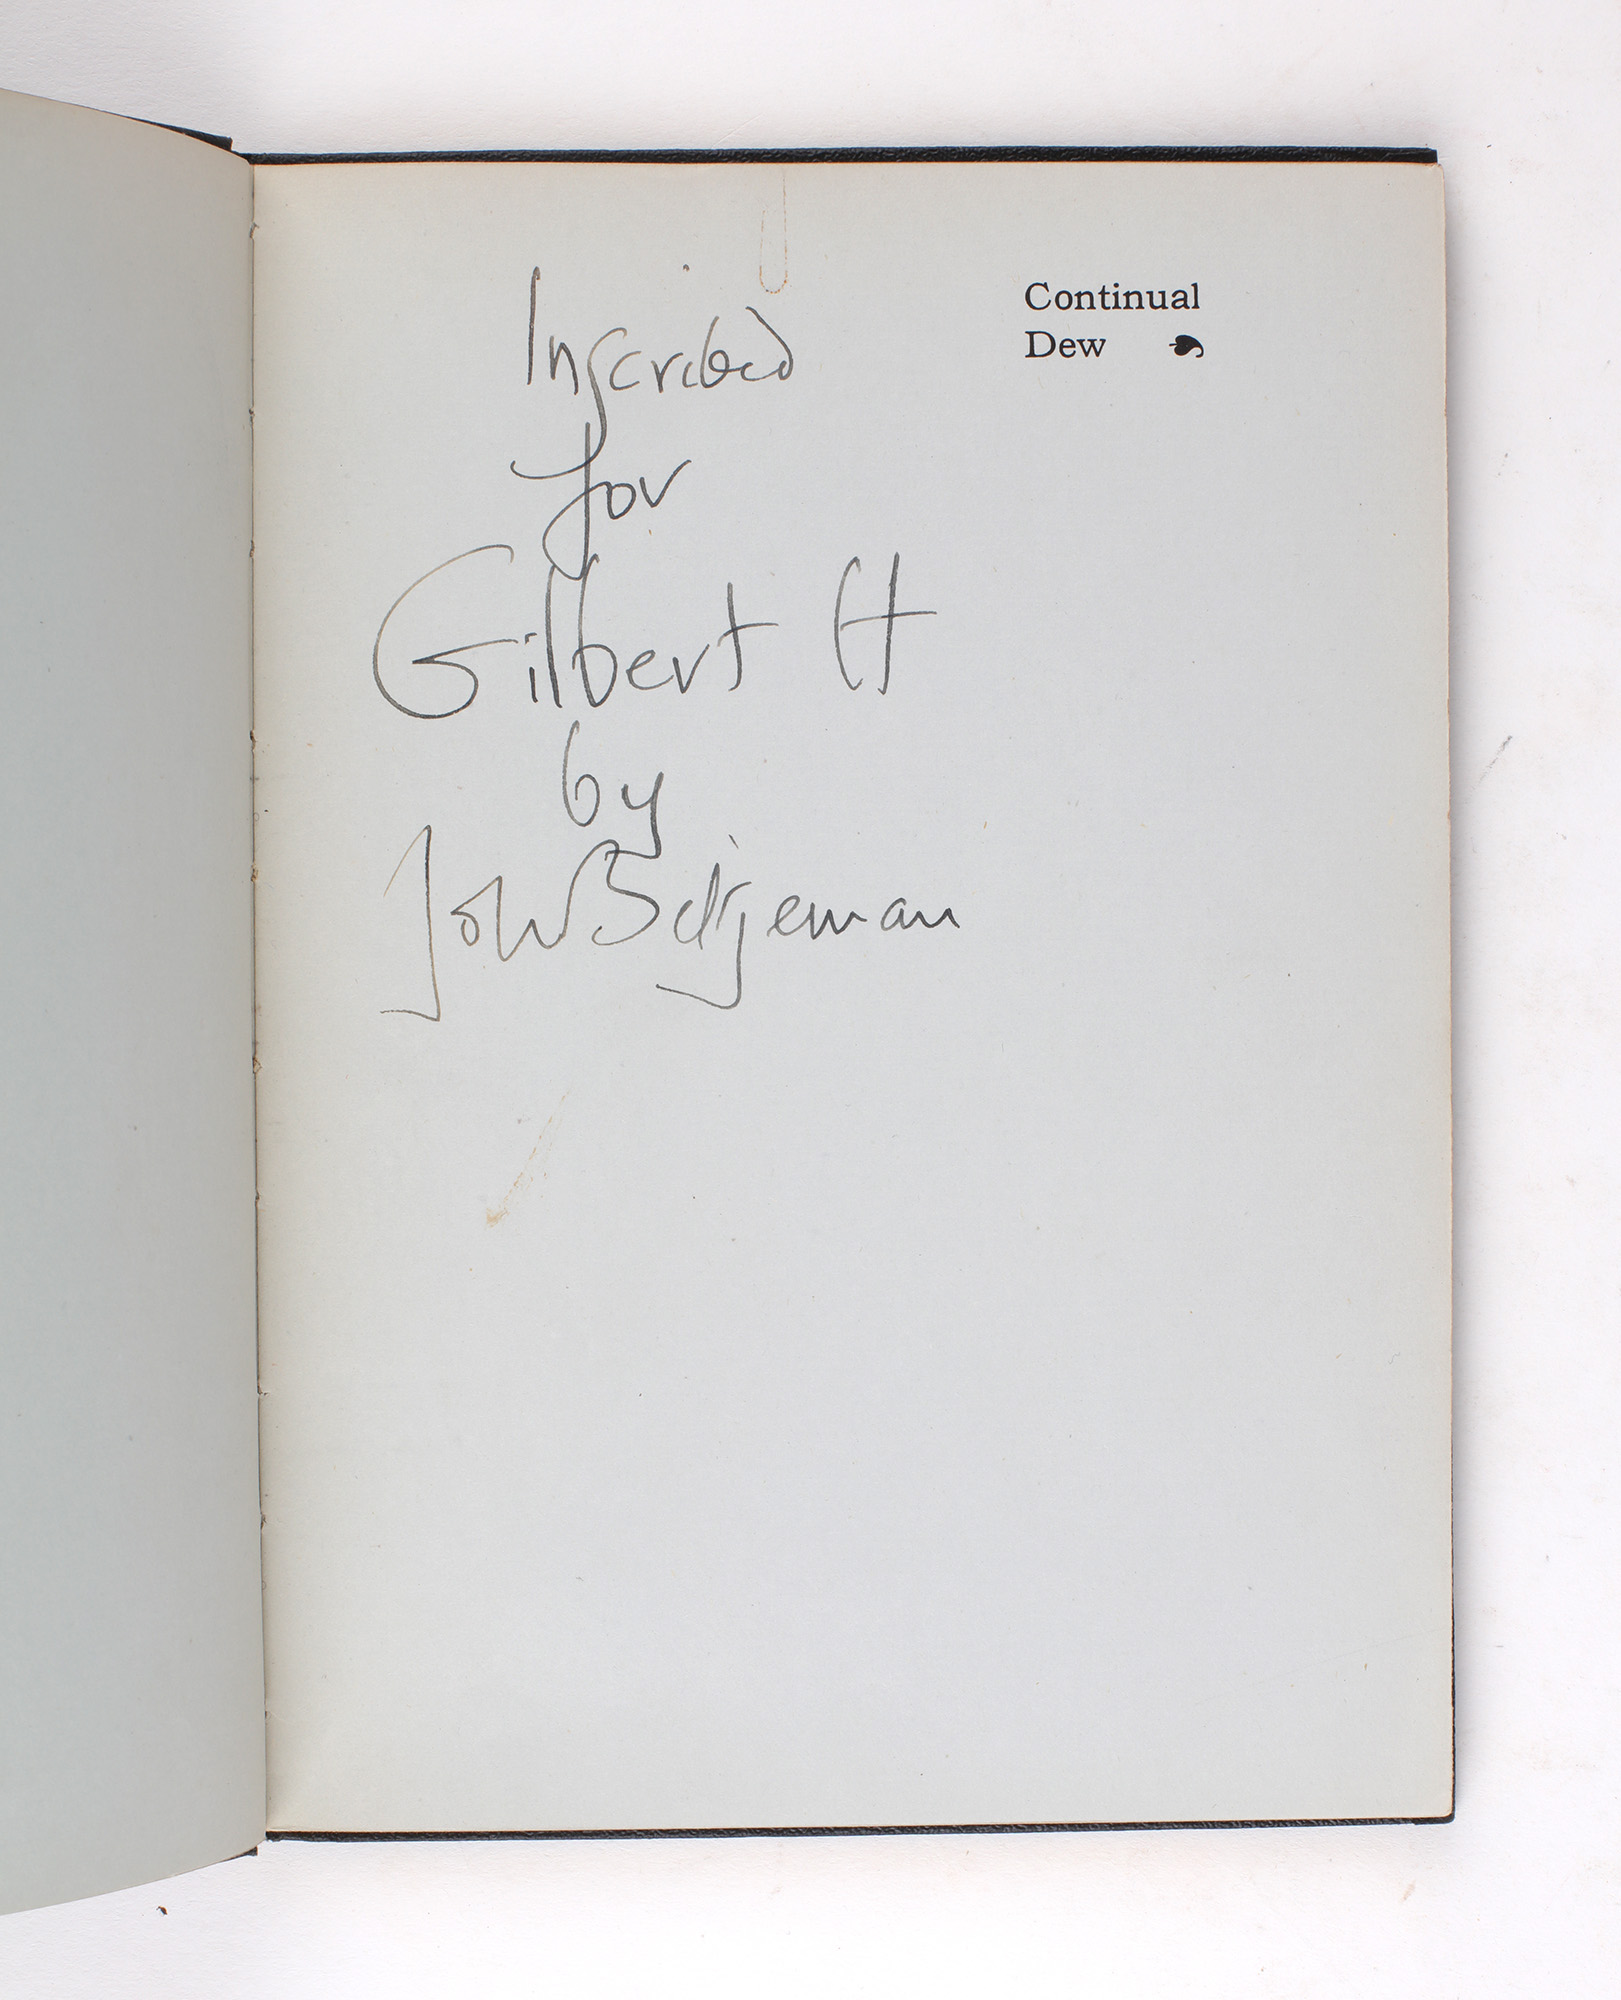 Continual
Dew
Inscribed
for
Gilbert H
by
John Betjeman